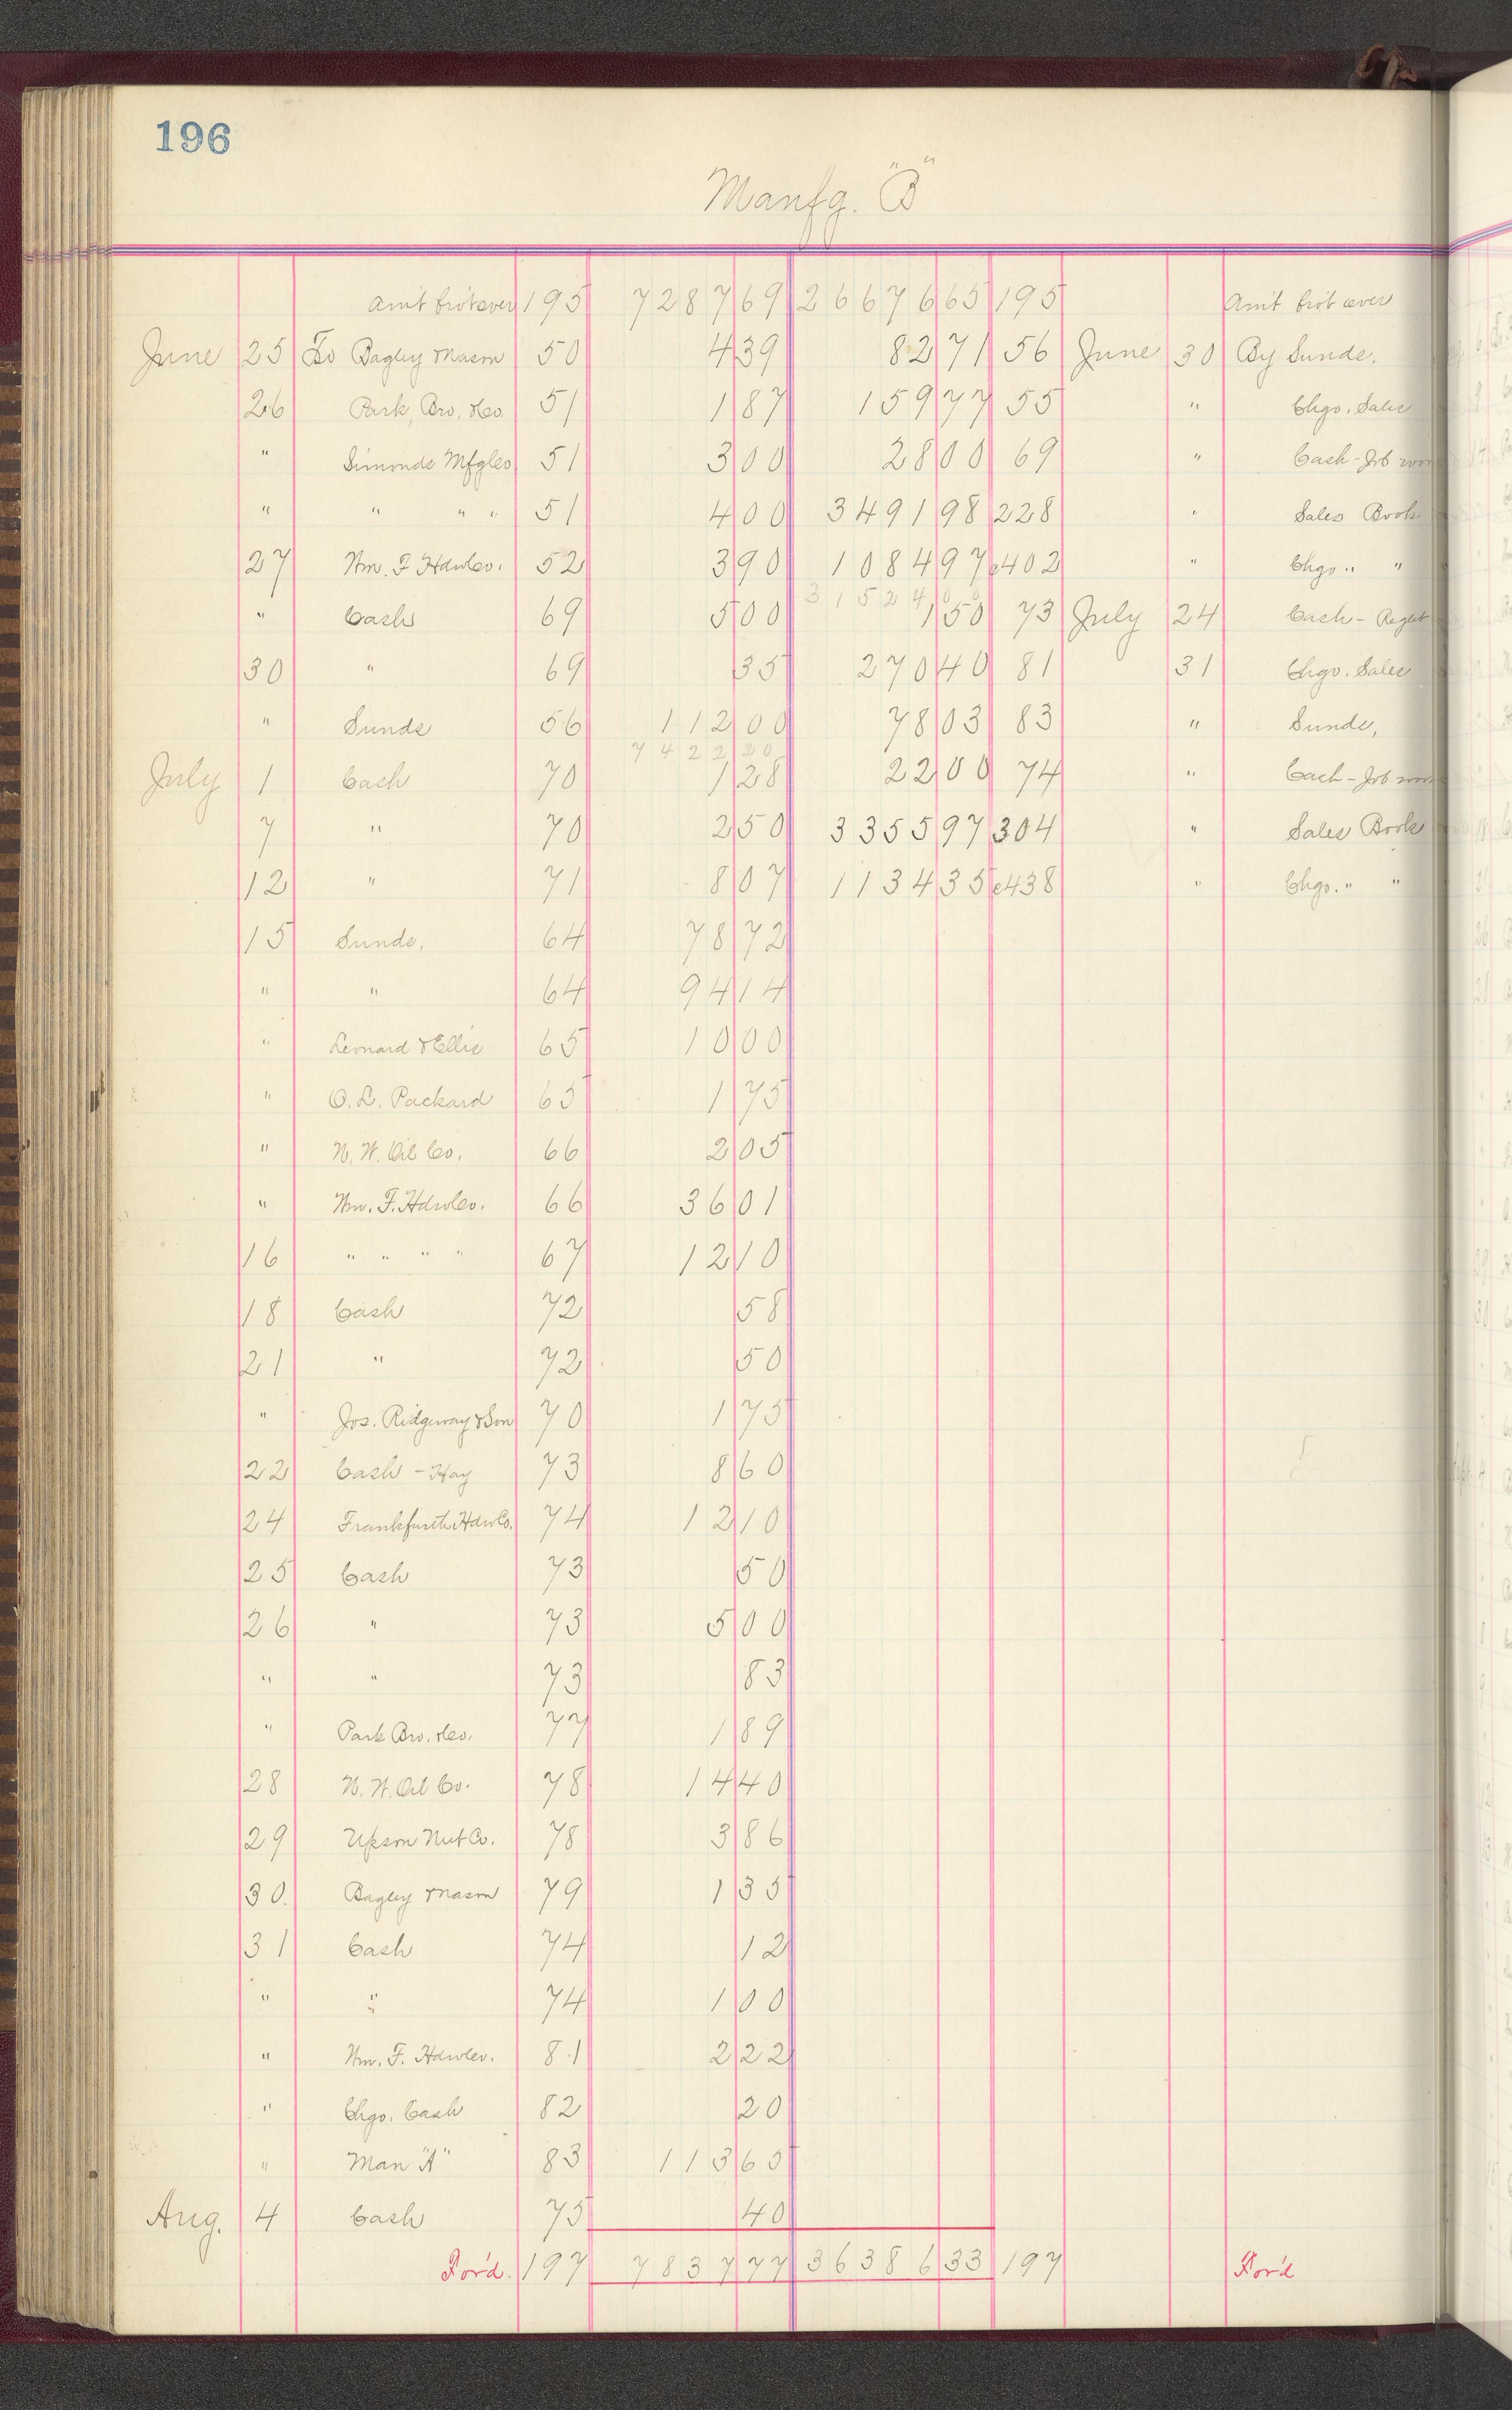 196
Manfg. "B"
Am't bro't over 195 7287 69 26676 65 195 Am't bro't over
June 25 To Bagley & Mason 50 4 39 82 71 56 June 30 By Sunds.
26 Park, Bro. & Co. 51 1 87 159 77 55 " Chgo. Sales
" Simonds Mfg Co 51 3 00 28 00 69 " Cash - Job
" " " " 51 4 00 3491 98 228 " Sales Book
27 Wm. F Hdw Co. 52 3 90 1084 97 c402 " Chgo " "
31524
" Cash 69 5 00 1 50 73 July 24 Cash -
30 " 69 35 270 40 81 31 Chgo. Sales
" Sunds 56 112 00 78 03 83 " Sunds,
7422 20
July 1 Cash 70 1 28 22 00 74 " Cash - Job
7 " 70 2 50 3355 97 304 " Sales Book
12 " 71 8 07 1134 35 c438 " Chgo. " "
15 Sunds. 64 78 72
" " 64 94 14
" Leonard & Ellis 65 10 00
" O. L. Packard 65 1 75
" N. W. Oil Co. 66 2 05
" Wm. F. Hdw Co. 66 36 01
16 " " " " 67 12 10
18 Cash 72 58
21 " 72 50
" Jos. Ridgway & Son 70 1 75
22 Cash - Hay 73 8 60
24 Frankfurth Hdw Co. 74 12 10
25 Cash 73 50
26 " 73 5 00
" " 73 83
" Park Bro. & Co. 77 1 89
28 N. W. Oil Co. 78 14 40
29 Upson Nut Co. 78 3 86
30 Bagley & Mason 79 1 35
31 Cash 74 12
" " 74 1 00
" Wm. F. Hdw Co. 81 2 22
" Chgo. Cash 82 20
" Man "A" 83 113 65
Aug. 4 Cash 75 40
For'd. 197 7837 77 36386 33 197 For'd